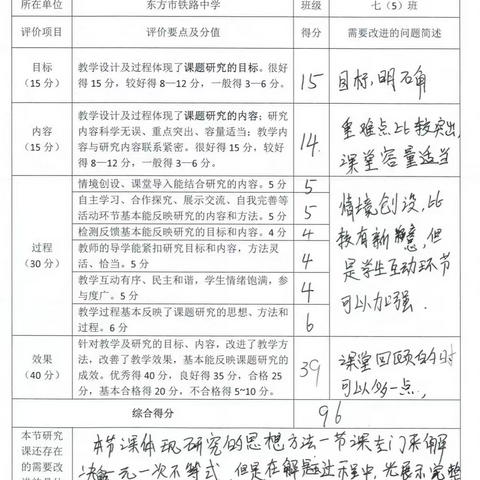 所在单位 东方市铁路中学 班级 七（5）班
评价项目 评价要点及分值 得分 需要改进的问题简述
目标
（15分）
教学设计及过程体现了课题研究的目标。很好
得15分，较好得8—12分，一般得3—6分。
15
目标,明确
内容
（15分）
教学设计及过程体现了课题研究的内容；研究
内容科学无误、重点突出、容量适当；教学内
容与研究内容联系紧密。很好得15分，较好
得8—12分，一般得3—6分。
14.
重难点比较突出,
课堂容量适当
过程
（30分）
情境创设、课堂导入能结合研究的内容。5分 5
自主学习、合作探究、展示交流、自我完善等
活动环节基本能反映研究的内容和方法。5分 5
检测反馈基本能反映研究的目标和内容。4分 4
教师的导学能紧扣研究目标和内容，方法灵
活、恰当。5分 4
教学互动有序、民主和谐，学生情绪饱满，参
与度广。5分 4
教学过程基本反映了课题研究的思想、方法和
过程。6分 6
情境创设,比
较有新意,但
是学生互动环节
可以加强.
效果
（40分）
针对教学及研究的目标、内容，改进了教学方
法，改善了教学效果，基本能反映课题研究的
成效。优秀得40分，良好得35分，合格25
分，基本合格得20分，不合格得5~10分。
39
课堂回顾的时
可以多一点,
综合得分 96
本节研究
课还存在
的需要改
本节课体现研究的思想方法一节课专门来解
决一元一次不等式,但是在解题过程中,先展示完整